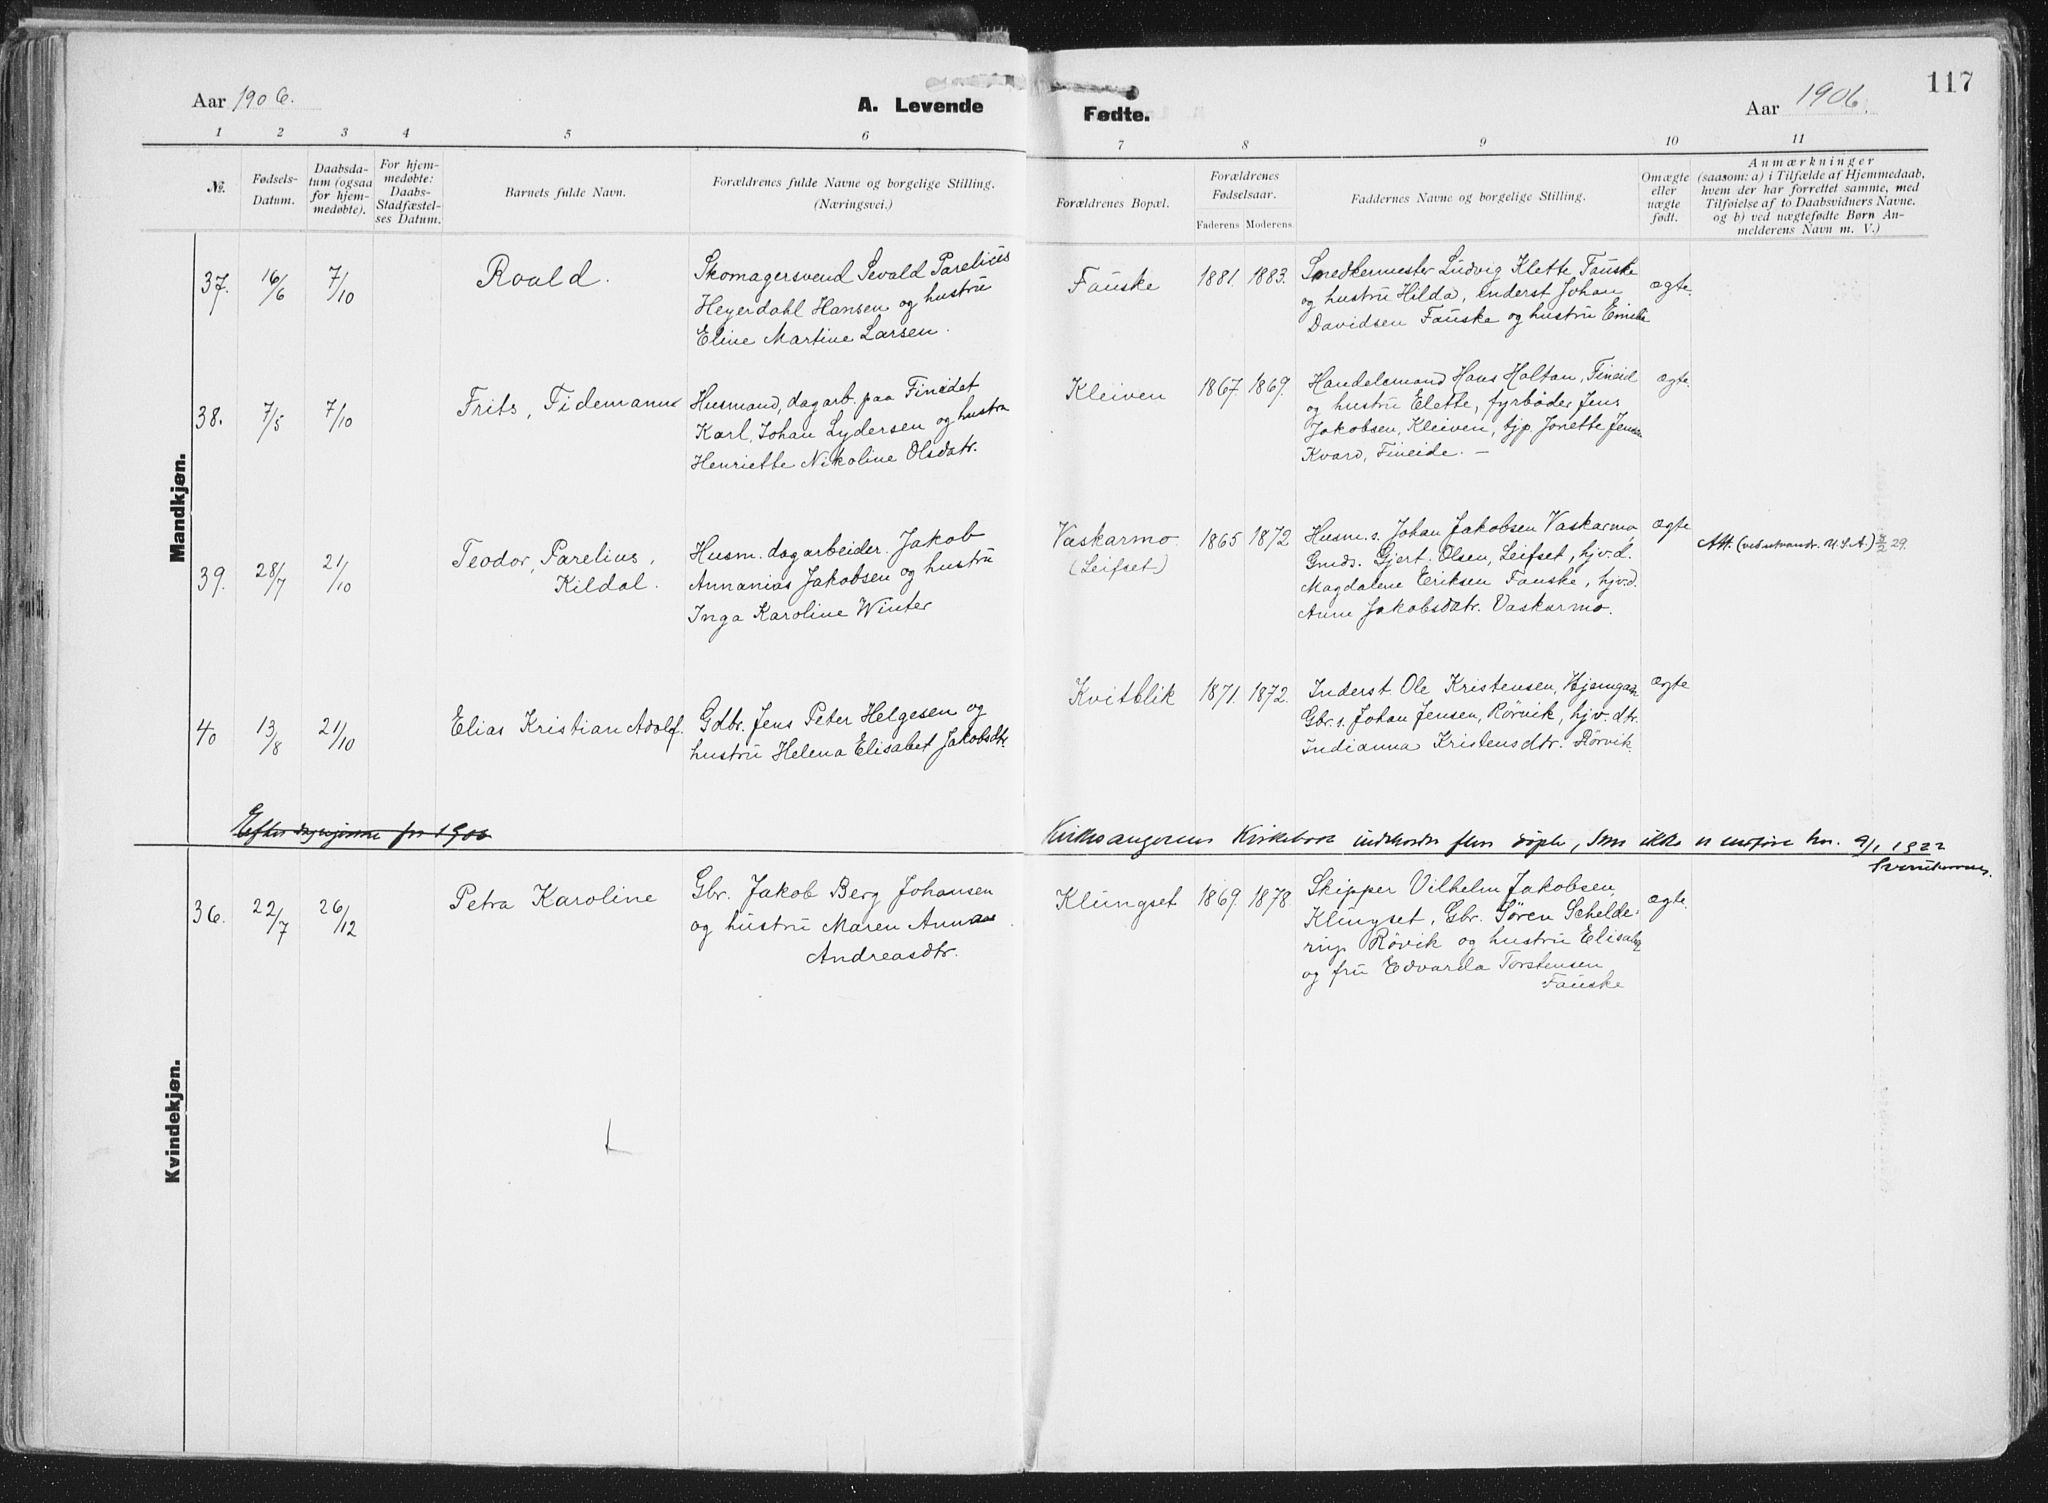 117
Aar 1906.
A. Levende
Fødte.
Aar 1906.
1 2 3 4 5 6 7 8 9 10 11
№.
Fødsels-
Datum.
Daabsda-
tum (ogsaa
for hjem-
medøbte).
For hjem-
medøbte:
Daabs-
Stadfæstel-
ses Datum.
Barnets fulde Navn.
Forældrenes fulde Navne og borgelige Stilling.
(Næringsvei.)
Forældrenes Bopæl.
Forældrenes
Fødselsaar.
Faderens Moderens.
Faddernes Navne og borgelige Stilling.
Om ægte
eller
uægte
født.
Anmærkninger
(saasom: a) i Tilfælde af Hjemmedaab,
hvem der har forrettet samme, med
Tilføielse af to Daabsvidners Navne.
og b) ved uægtefødte Børn An-
melderens Navn m. V.)
Mandkjøn.
37. 16/6 7/10 Roald.
Skomagersvend Sevald Parelius
Heyerdahl Hansen og hustru
Eline Martine Larsen.
Fauske 1881. 1883.
Snedkermester Ludvig Klette Fauske
og hustru Hilda, inderst Johan
Davidsen Fauske og hustru Emelie
ægte.
38. 7/5 7/10 Frits, Tidemann
Husmand, dagarb. paa Fineidet
Karl, Johan Lydersen og hustru
Henriette Nikoline Olsdatr.
Kleiven 1867. 1869.
Handelsmand Hans Holtan, Fineid
og hustru Elette, fyrbøder Jens
Jakobsen, Kleiven, tjp. Jonette Jensen
Kvard, Fineide. —
ægte.
39. 28/7 21/10 Teodor, Parelius,
Kildal.
Husm. dagarbeider. Jakob
Annanias Jakobsen og hustru
Inga Karoline Winter
Vaskarmo
(Leifset)
1865 1872
Husm. s. Johan Jakobsen Vaskarmo,
Gmds. Gjert. Olsen, Leifset, hjv.d.
Magdalene Eriksen Fauske, hjv.d.
Anne Jakobsdatr. Vaskarmo.
ægte
Att. (ved utvandr. U.S.A.) 29.
40 13/8 21/10 Elias Kristian Adolf.
Gdbr. Jens Peter Helgesen og
hustru Helena Elisabet Jakobsdtr.
Kvitblik 1871. 1872.
Inderst Ole Kristensen,
Gbr. s. Johan Jensen, Rørvik, hjv. dtr.
Indianna Kristensdtr. Rørvik
ægte
for 1906
Kirkesangerens Kirkebok indeholder flere døpte, som ikke er indført her. 9/1 1922
Kvindekjøn.
36. 22/7 26/12 Petra Karoline
Gbr. Jakob Berg Johansen
og hustru Maren Anna
Andreasdtr.
Klungset 1869. 1878.
Skipper Vilhelm Jakobsen,
Klungset, Gbr. Søren Schelde-
rup Røvik og hustru
og fru Edvarda Torstensen
Fauske
ægte.